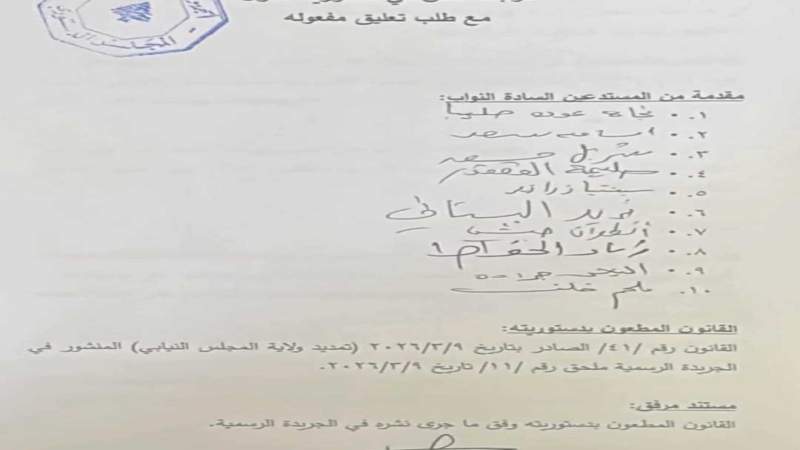 مع طلب تعليق مفعوله
المجلس الدستوري
مقدمة من المستدعين السادة النواب:
١. • نجاة عون صليبا
٢. • أسامة سعد
٣. • شربل مسعد
٤. • حليمة القعقور
٥. • سينتيا زرازير
٦. • فريد البستاني
٧. • أنطوان حبشي
٨. • زياد الحواط
٩. • الياس جراده
١٠. • ملحم خلف
القانون المطعون بدستوريته:
القانون رقم /٤١/ الصادر بتاريخ ٢٠٢٦/٣/٩ (تمديد ولاية المجلس النيابي) المنشور في
الجريدة الرسمية ملحق رقم /١١/ تاريخ ٢٠٢٦/٣/٩.
مستند مرفق:
القانون المطعون بدستوريته وفق ما جرى نشره في الجريدة الرسمية.